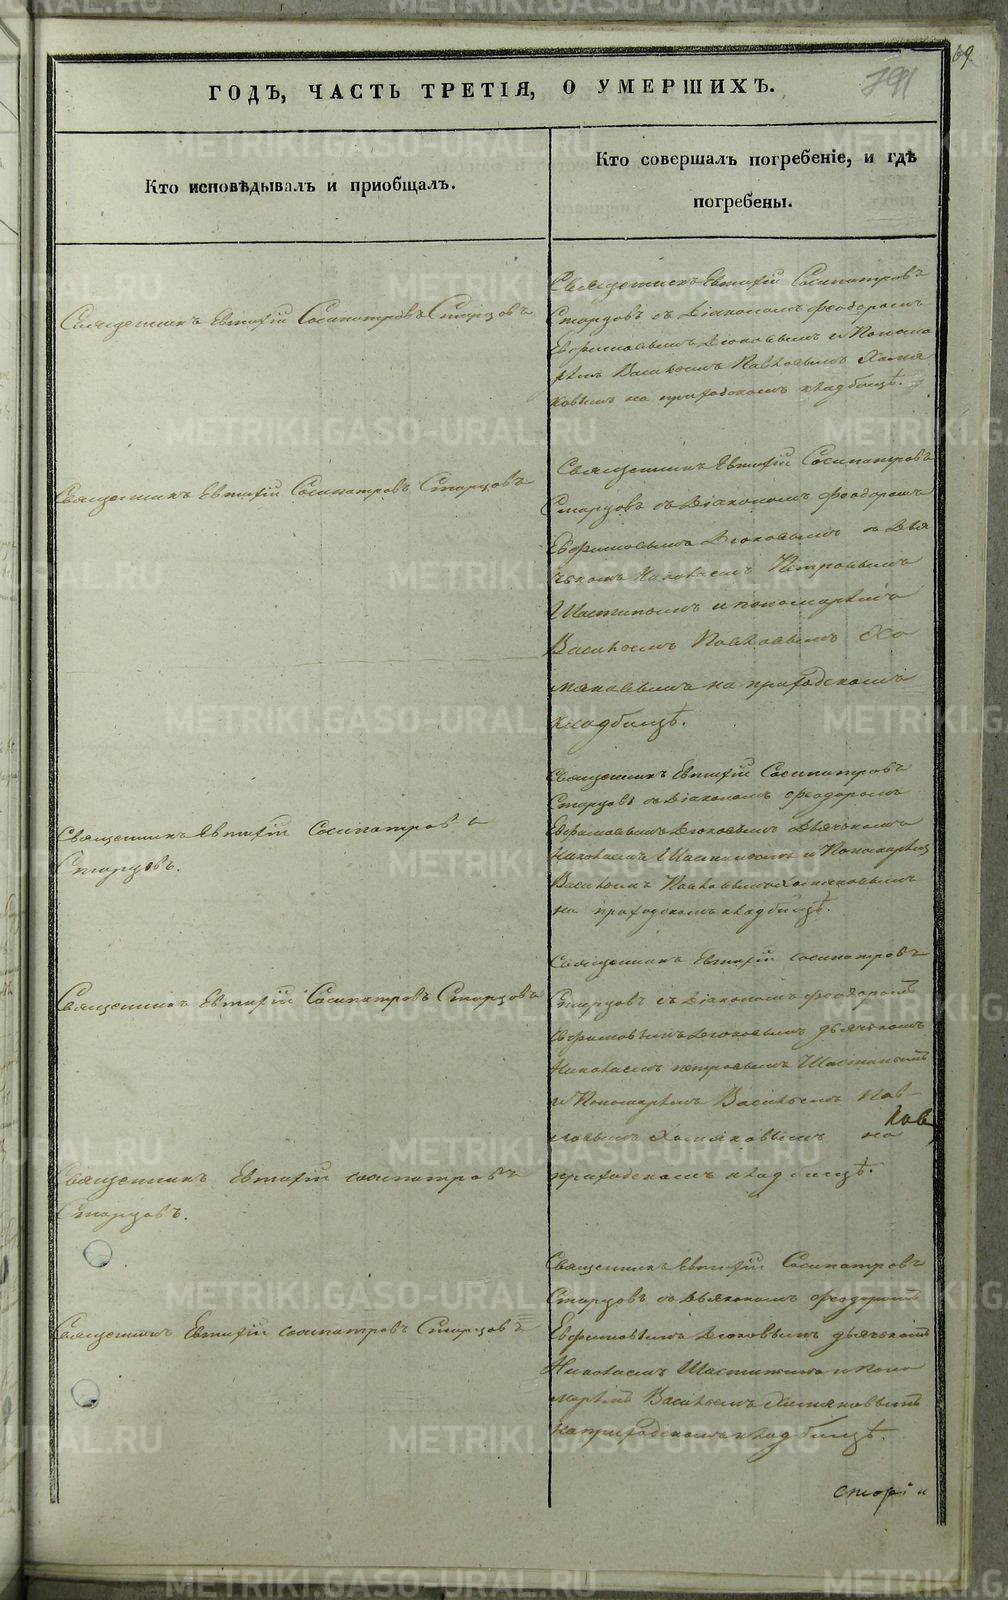 69
791
ГОДЪ, ЧАСТЬ ТРЕТІЯ, О УМЕРШИХЪ.
Кто исповѣдывалъ и пріобщалъ.
Кто совершалъ погребеніе, и гдѣ
погребены.
Священникъ Евтихій Сосипатровъ Старцовъ
Священникъ Евтихій Сосипатровъ
Старцовъ съ Діакономъ Феодоромъ
Евфимовымъ Дюковымъ и Понома
рѣмъ Васильемъ Павловымъ Хомя
ковымъ на приходскомъ кладбищѣ.
Священникъ Евтихій Сосипатровъ Старцовъ
Священникъ Евтихій Сосипатровъ
Старцовъ съ Діакономъ Феодоромъ
Евфимовымъ Дюковымъ дья
чькомъ Николаемъ Петровымъ
и пономарѣмъ
Васильемъ Павловымъ Хо
мяковымъ на приходскомъ
кладбищѣ.
Священникъ Евтихій Сосипатровъ
Старцовъ.
Священникъ Евтихій Сосипатровъ
Старцовъ съ Діакономъ Феодоромъ
Евфимовымъ Дюковымъ дьячькомъ
Николаемъ и Пономарѣмъ
Васильемъ Павловымъ Хомяковымъ
на приходскомъ кладбищѣ.
Священникъ Евтихій Сосипатровъ Старцовъ
Священникъ Евтихій Сосипатровъ
Старцовъ съ Діакономъ Феодоромъ
Евфимовымъ Дюковымъ дьячькомъ
Николаемъ Петровымъ
и Пономарѣмъ Васильемъ Пав-
ловымъ Хомяковымъ на
приходскомъ кладбищѣ.
Священникъ Евтихій Сосипатровъ
Старцовъ.
Священникъ Евтихій Сосипатровъ Старцовъ
Священникъ Евтихій Сосипатровъ
Старцовъ съ Дьякономъ Феодоромъ
Евфимовымъ Дюковымъ дьячькомъ
Николаемъ и Поно
марѣмъ Васильемъ Хомяковымъ
на приходскомъ кладбищѣ.